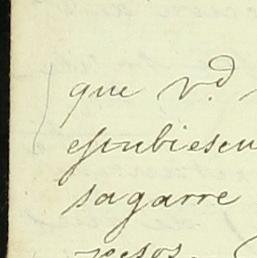 que Vd.
estubiesen
sagarre
pesos.